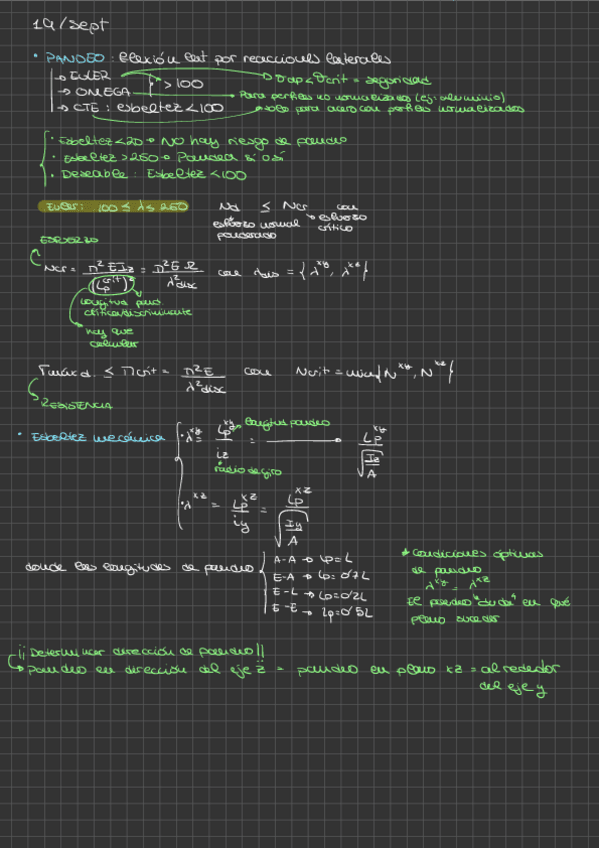 19/sept
• PANDEO: flexión lat por reacciones laterales
→ EULER
→ OMEGA
> 100
→ CTE: esbeltez < 100
σap < σcrit = seguridad
Para perfiles no normalizados (ej: aluminio)
solo para acero con perfiles normalizados
• Esbeltez < 20 → NO hay riesgo de pandeo
• Esbeltez > 250 → Pandea sí o sí
• Deseable: Esbeltez < 100
Euler: 100 ≤ λ ≤ 250
Nd ≤ Ncr con
esfuerzo normal ponderado
esfuerzo crítico
ESFUERZO
Ncr = π²EIz / (Lp^crit)² = π²EΩ / λ²disc con λdis = {λ^xy, λ^xz}
longitud pand.
crítica/discriminante
hay que
calcular
σmáx d. ≤ σcrit = π²E / λ²disc con Ncrit = min{N^xy, N^xz}
RESISTENCIA
• Esbeltez mecánica
• λ^xy = Lp^xy / iz = Lp^xy / √(Iz/A)
longitud pandeo
radio de giro
• λ^xz = Lp^xz / iy = Lp^xz / √(Iy/A)
donde las longitudes de pandeo
A-A → Lp = L
E-A → Lp = 0'7L
E-L → Lp = 0'2L
E-E → Lp = 0'5L
* Condiciones óptimas
de pandeo
λ^xy = λ^xz
El pandeo "duda" en qué
plano suceder
¡¡Determinar dirección de pandeo!!
→ Pandeo en dirección del eje z = pandeo en plano xz = alrededor
del eje y